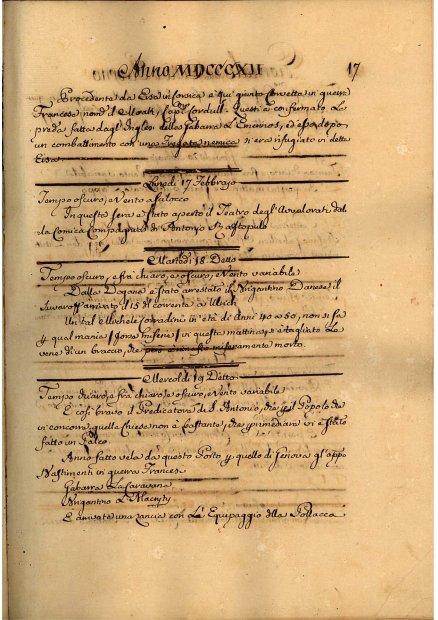 Anno MDCCCXII
17
Procedente da Eisa in Corsica è qui giunto Corvetta in guerra
Francese nom.ª il Mosath, Cap.º Cordull. Questi à confermato la
preda fatta dagl' Inglesi della Gabarra L'
un combattimento con una Fregata nemica si era rifugiato in detta
Eisa.
Lunedì 17 Febbrajo
Tempo oscuro, e Vento a Scilocco
In questa sera è stato aperto il Teatro degl' Avvalorati dal-
la Comica Compagnia di Antonio Raftopulo
Martedì 18 Detto
Tempo oscuro, e frà chiaro, e oscuro, e Vento variabile
Dalla Dogana è stato arrestato il Brigantino Danese il
arrivato il 15 del corrente a
Un tal Michele Corradini in età di Anni 40 a 50, non si sà
p qual mania (forse Miseria) in questa mattina si è tagliato le
vene di un braccio, ed miseramente morto.
Mercoldì 19 Detto
Tempo chiaro, e frà chiaro, e oscuro, e Vento variabile
È così bravo il Predicatore di S. Antonio, che p il Popolo che
vi concorre quella Chiesa non è bastante, che p rimediare vi è stato
fatto un Palco
Anno fatto vela da questo Porto p quello di Genova gl' app.º
Bastimenti in guerra Francesi
Gabarra La Caravana
Brigantino L'
È arrivata una Lancia con L'Equipaggio della Pollacca